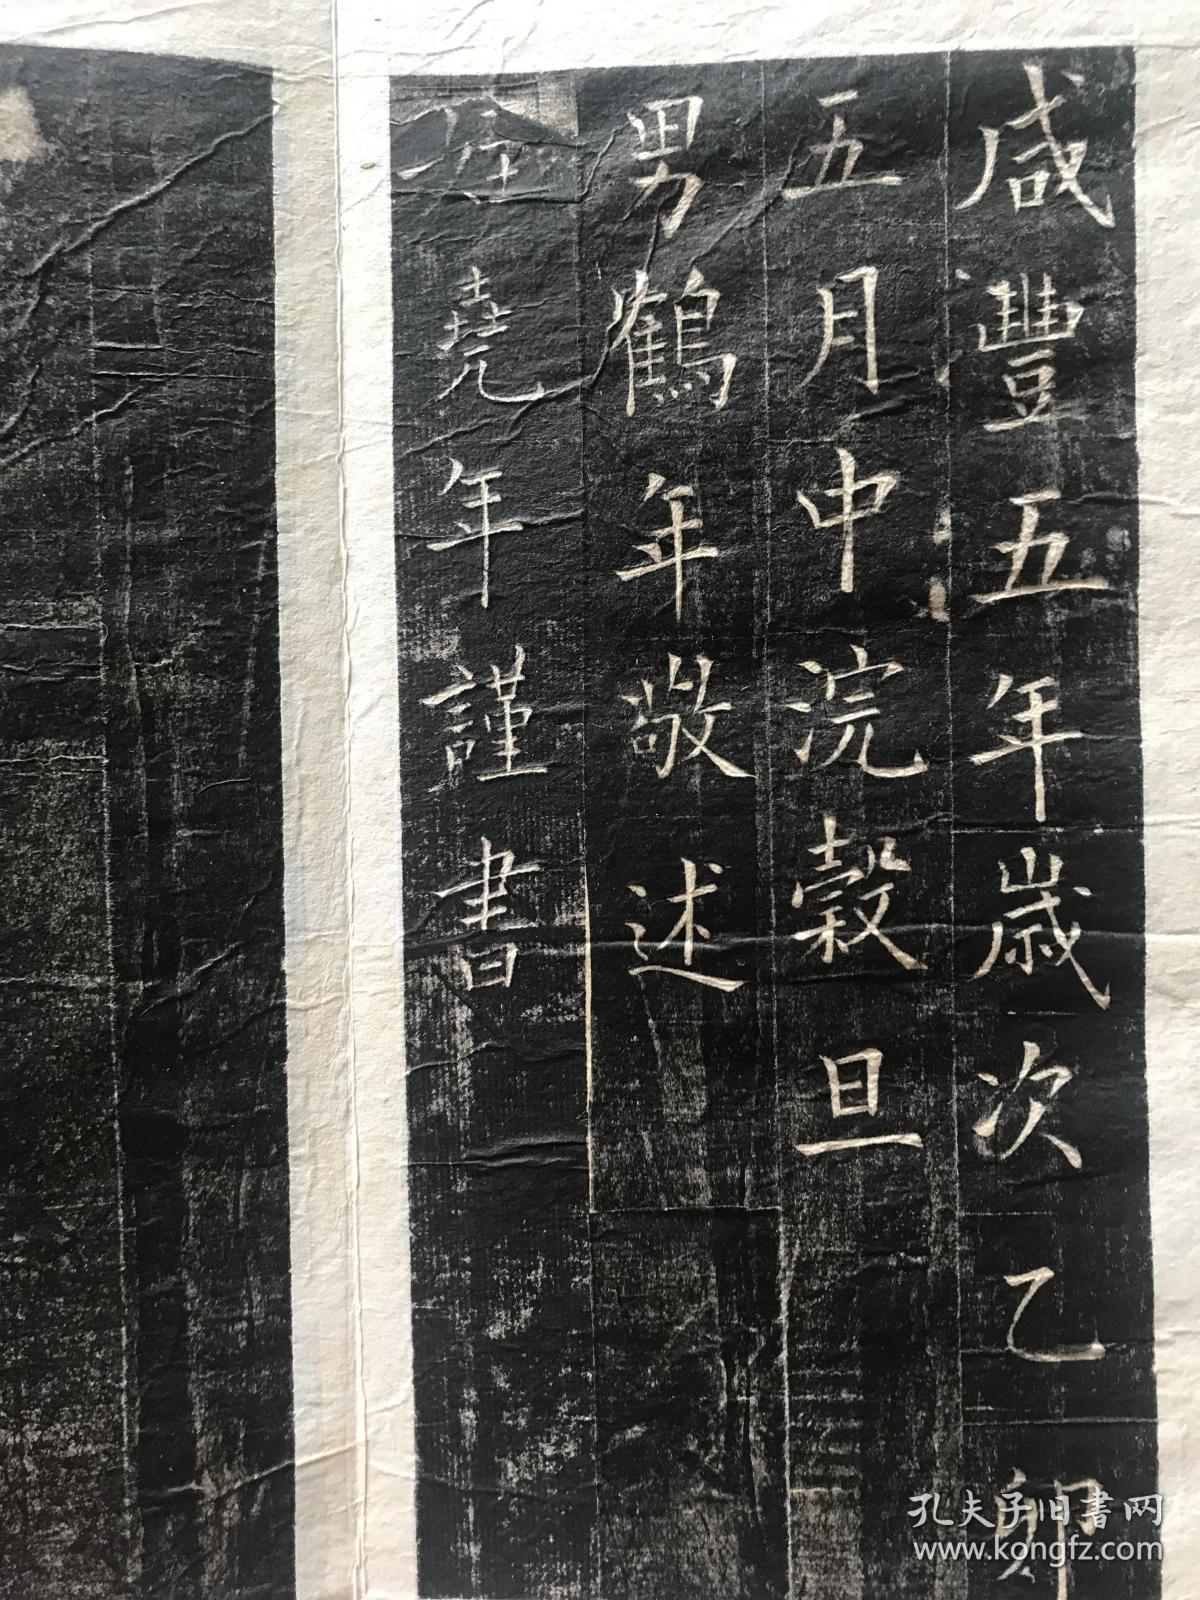 咸豐五年歲次乙卯
五月中浣穀旦
男鶴年敬述
堯年謹書
孔夫子旧書网
www.kongfz.com